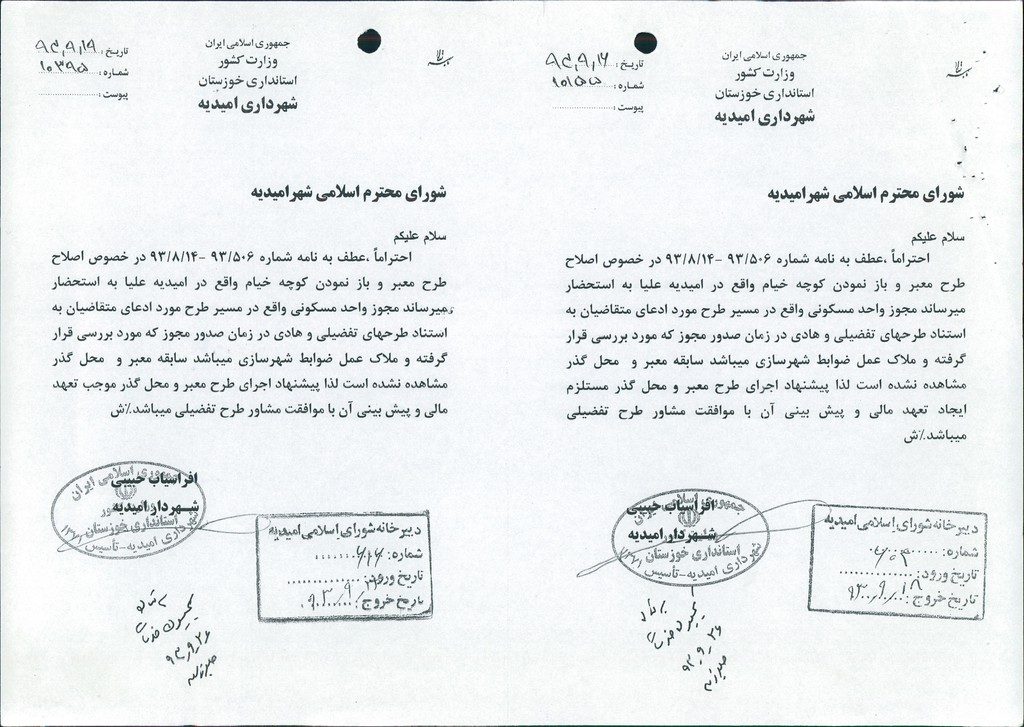 جمهوری اسلامی ایران
وزارت کشور
استانداری خوزستان
شهرداری امیدیه
تاریخ: ۹۳,۹,۱۶
شماره: ۱۰۱۵۵
پیوست:
شورای محترم اسلامی شهرامیدیه
سلام علیکم
احتراماً ،عطف به نامه شماره ۹۳/۵۰۶ -۹۳/۸/۱۴ در خصوص اصلاح
طرح معبر و باز نمودن کوچه خیام واقع در امیدیه علیا به استحضار
میرساند مجوز واحد مسکونی واقع در مسیر طرح مورد ادعای متقاضیان به
استناد طرحهای تفضیلی و هادی در زمان صدور مجوز که مورد بررسی قرار
گرفته و ملاک عمل ضوابط شهرسازی میباشد سابقه معبر و محل گذر
مشاهده نشده است لذا پیشنهاد اجرای طرح معبر و محل گذر مستلزم
ایجاد تعهد مالی و پیش بینی آن با موافقت مشاور طرح تفضیلی
میباشد.٪ش
افراسیاب حبیبی
شهردار امیدیه
جمهوری اسلامی ایران
استانداری خوزستان
شهرداری امیدیه-تأسیس
دبیرخانه شورای اسلامی امیدیه
شماره:
تاریخ ورود:
تاریخ خروج: ۹۳,۹,۱۸
۹۳,۹,۲۶
جمهوری اسلامی ایران
وزارت کشور
استانداری خوزستان
شهرداری امیدیه
تاریخ: ۹۳,۹,۱۹
شماره: ۱۰۳۹۵
پیوست:
شورای محترم اسلامی شهرامیدیه
سلام علیکم
احتراماً ،عطف به نامه شماره ۹۳/۵۰۶ -۹۳/۸/۱۴ در خصوص اصلاح
طرح معبر و باز نمودن کوچه خیام واقع در امیدیه علیا به استحضار
میرساند مجوز واحد مسکونی واقع در مسیر طرح مورد ادعای متقاضیان به
استناد طرحهای تفضیلی و هادی در زمان صدور مجوز که مورد بررسی قرار
گرفته و ملاک عمل ضوابط شهرسازی میباشد سابقه معبر و محل گذر
مشاهده نشده است لذا پیشنهاد اجرای طرح معبر و محل گذر موجب تعهد
مالی و پیش بینی آن با موافقت مشاور طرح تفضیلی میباشد.٪ش
افراسیاب حبیبی
شهردار امیدیه
جمهوری اسلامی ایران
وزارت کشور
استانداری خوزستان
شهرداری امیدیه-تأسیس
دبیرخانه شورای اسلامی امیدیه
شماره:
تاریخ ورود:
تاریخ خروج:
۹۳,۹,۲۶